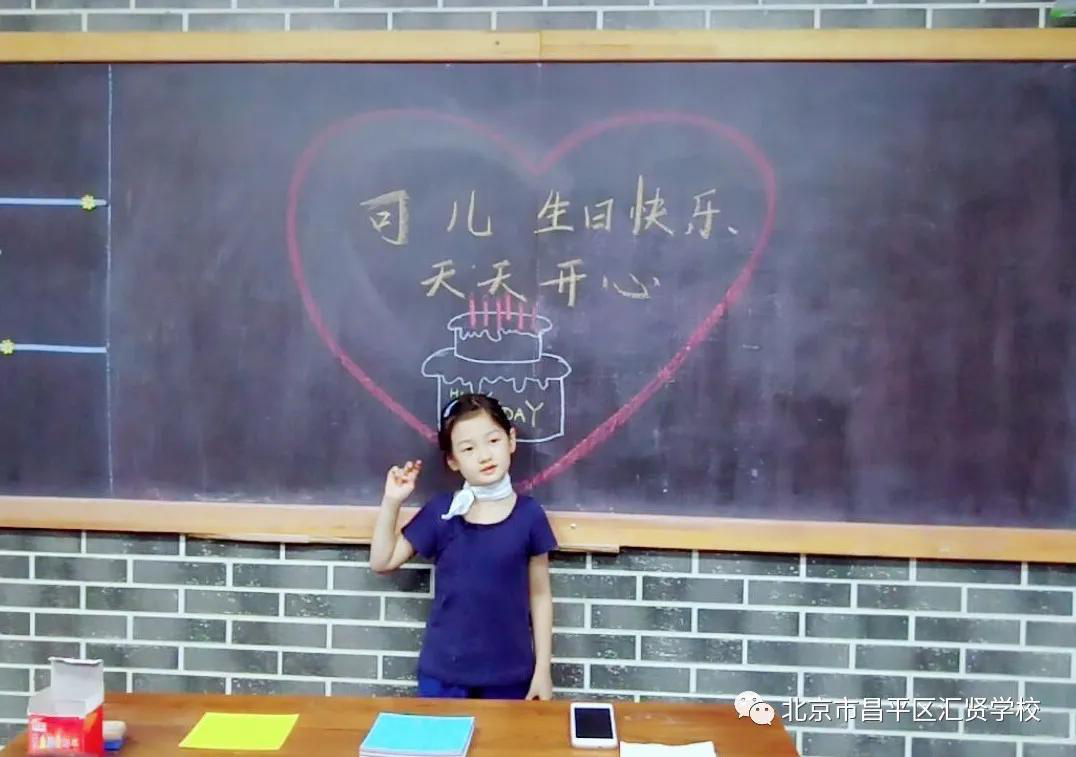 可 儿 生日快乐、
天天开心
DAY
北京市昌平区汇贤学校